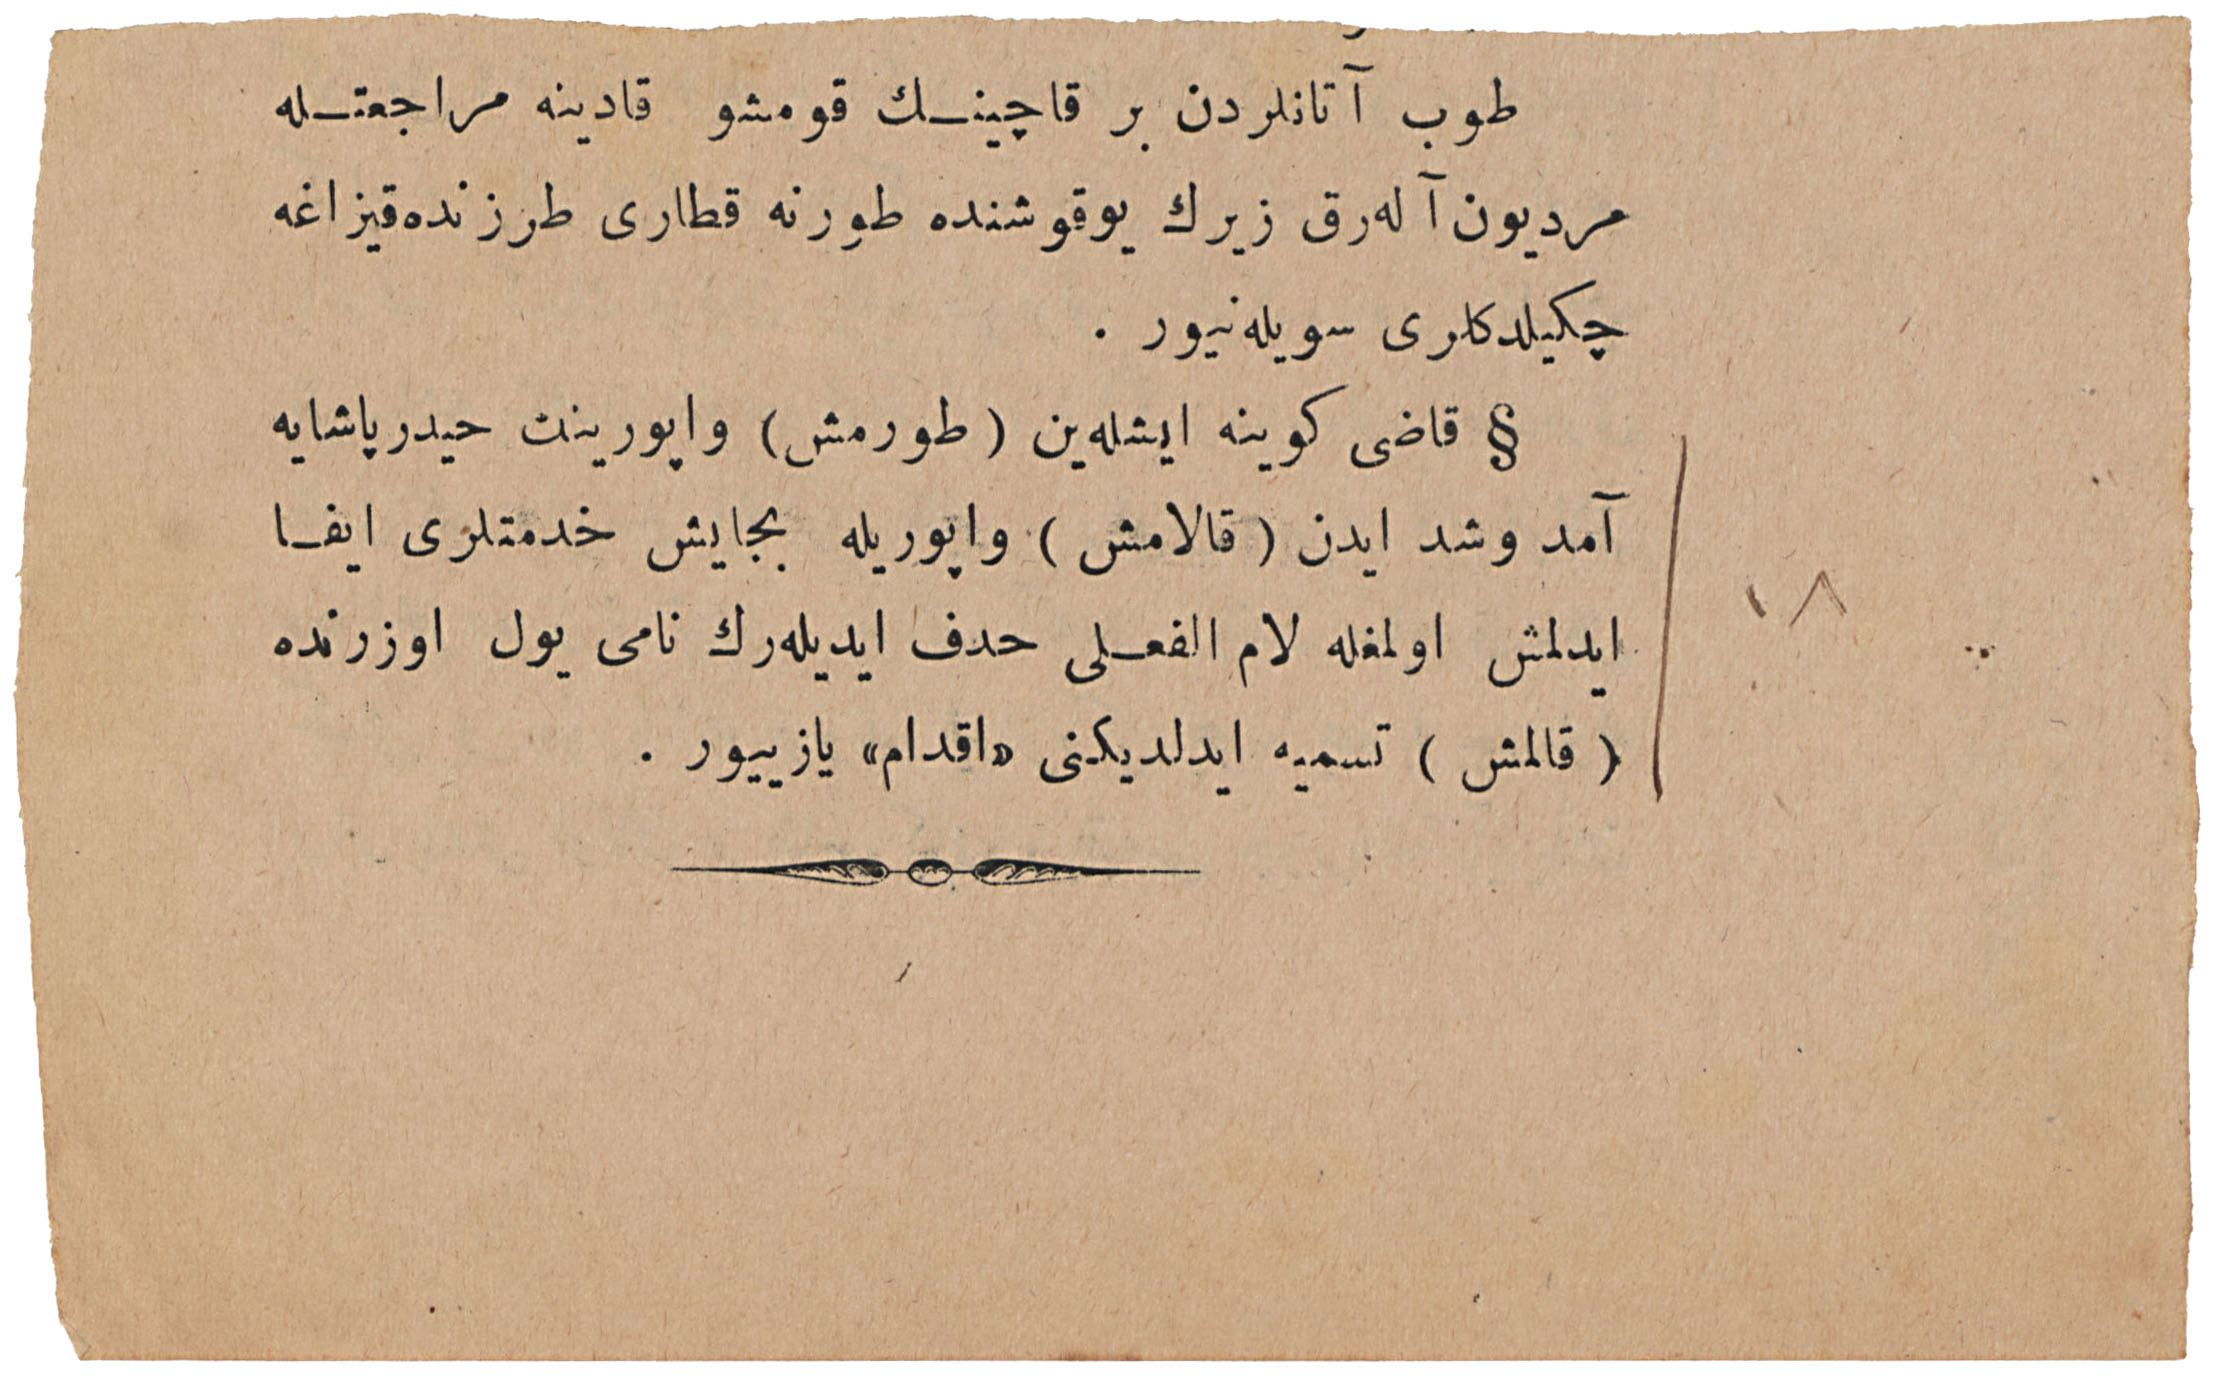 طوب آتانلردن بر قاچینـك قومشو قادینه مراجعتـله
مردیون آلەرق زیرك یوقوشنده طورنه قطاری طرزنده قیزاغه
چكیلدكلری سویلەنیور .
§ قاضی كوینه ایشلەین ( طورمش ) واپورینك حیدرپاشایه
آمد وشد ایدن ( قالامش ) واپوریله بجایش خدمتلری ایفـا
ایدلمش اولمغله لام الفعـلی حدف ایدیلەرك نامی یول اوزرنده
( قالمش ) تسمیه ایدلدیكنی «اقدام» یازییور .
١٨